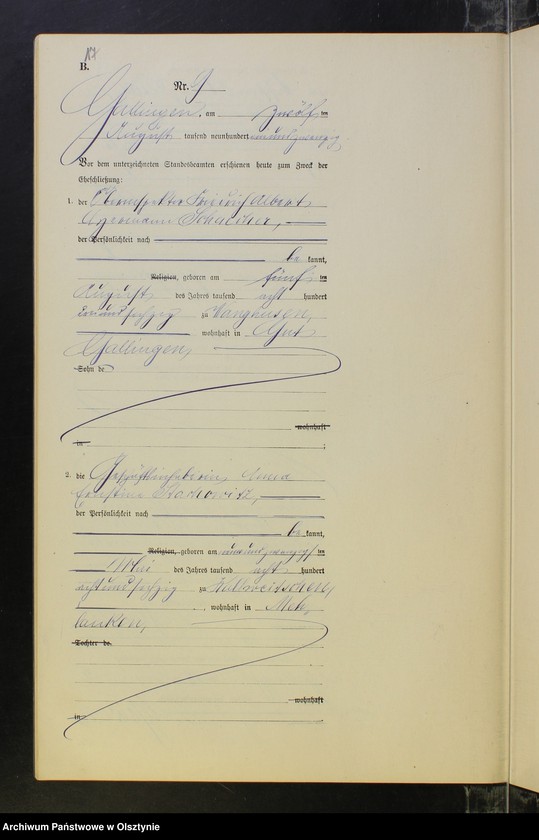 B.
Nr. 9
Gallingen, am zwölften
August tausend neunhundert einundzwanzig
Vor dem unterzeichneten Standesbeamten erschienen heute zum Zweck der
Eheschließung:
1. der Oberinspektor Friedrich Albert
Schneider,
der Persönlichkeit nach
be kannt,
Religion, geboren am fünften
August des Jahres tausend acht hundert
undsechzig zu Langhusen,
wohnhaft in Gut
Gallingen,
Sohn de
wohnhaft
in ;
2. die Geschäftsinhaberin Anna
Ernestine
der Persönlichkeit nach
be kannt,
Religion, geboren am neunundzwanzigsten
Mai des Jahres tausend acht hundert
achtundsechzig zu
, wohnhaft in Meh
lauken,
Tochter de
wohnhaft
in
Archiwum Państwowe w Olsztynie